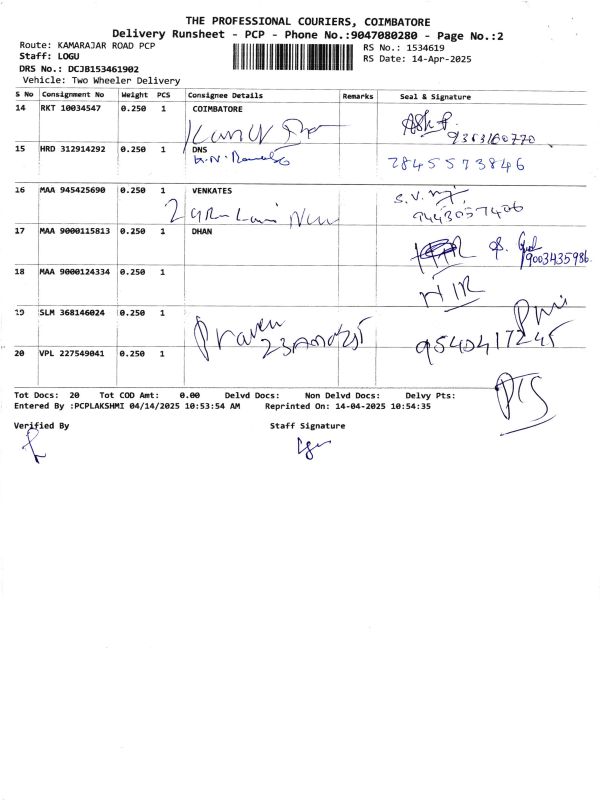 THE PROFESSIONAL COURIERS, COIMBATORE
Delivery Runsheet - PCP - Phone No.:9047080280 - Page No.:2
Route: KAMARAJAR ROAD PCP
RS No.: 1534619
Staff: LOGU
RS Date: 14-Apr-2025
DRS No.: DCJB153461902
Vehicle: Two Wheeler Delivery
S No Consignment No Weight PCS Consignee Details Remarks Seal & Signature
14 RKT 10034547 0.250 1 COIMBATORE
9363160770
15 HRD 312914292 0.250 1 DNS
2845573846
16 MAA 945425690 0.250 1 VENKATES
S.V.
9443057406
17 MAA 9000115813 0.250 1 DHAN
9003435986
18 MAA 9000124334 0.250 1
19 SLM 368146024 0.250 1
Praveen
9540417245
20 VPL 227549041 0.250 1
Tot Docs: 20 Tot COD Amt: 0.00 Delvd Docs: Non Delvd Docs: Delvy Pts:
Entered By :PCPLAKSHMI 04/14/2025 10:53:54 AM Reprinted On: 14-04-2025 10:54:35
Verified By
Staff Signature